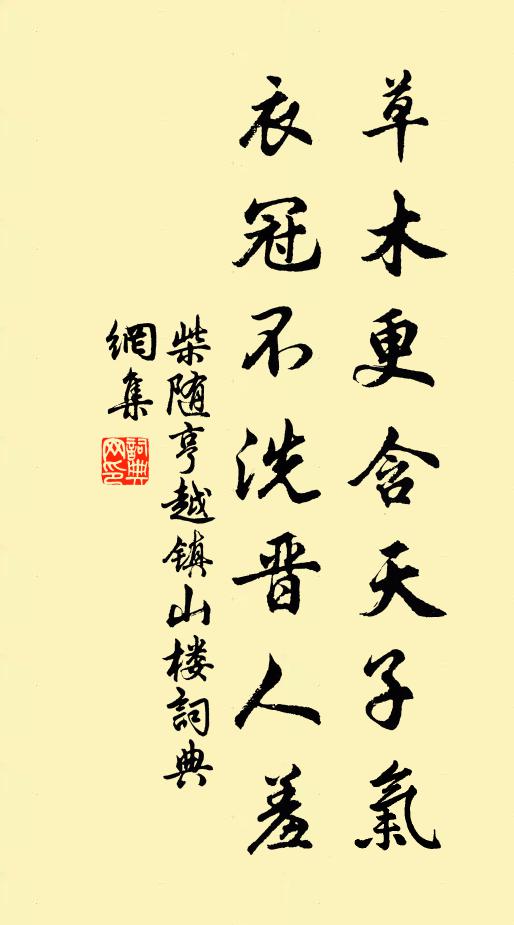 草木更含天子氣
衣冠不洗晋人羞
柴随亨越镇山楼詞典
網集
詞典网印